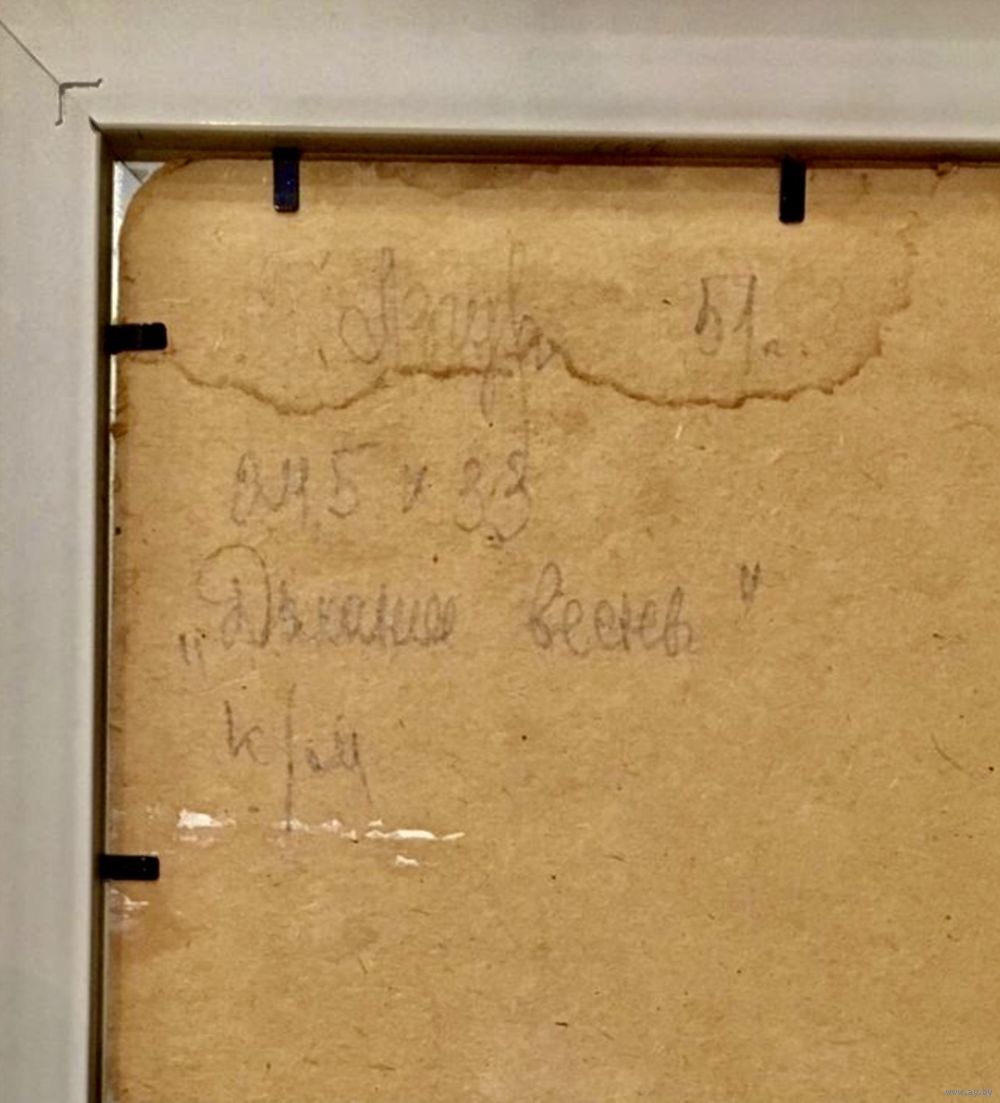 51 г.
24,5 х 33
„Дыхание весны"
к/м
www.ay.by